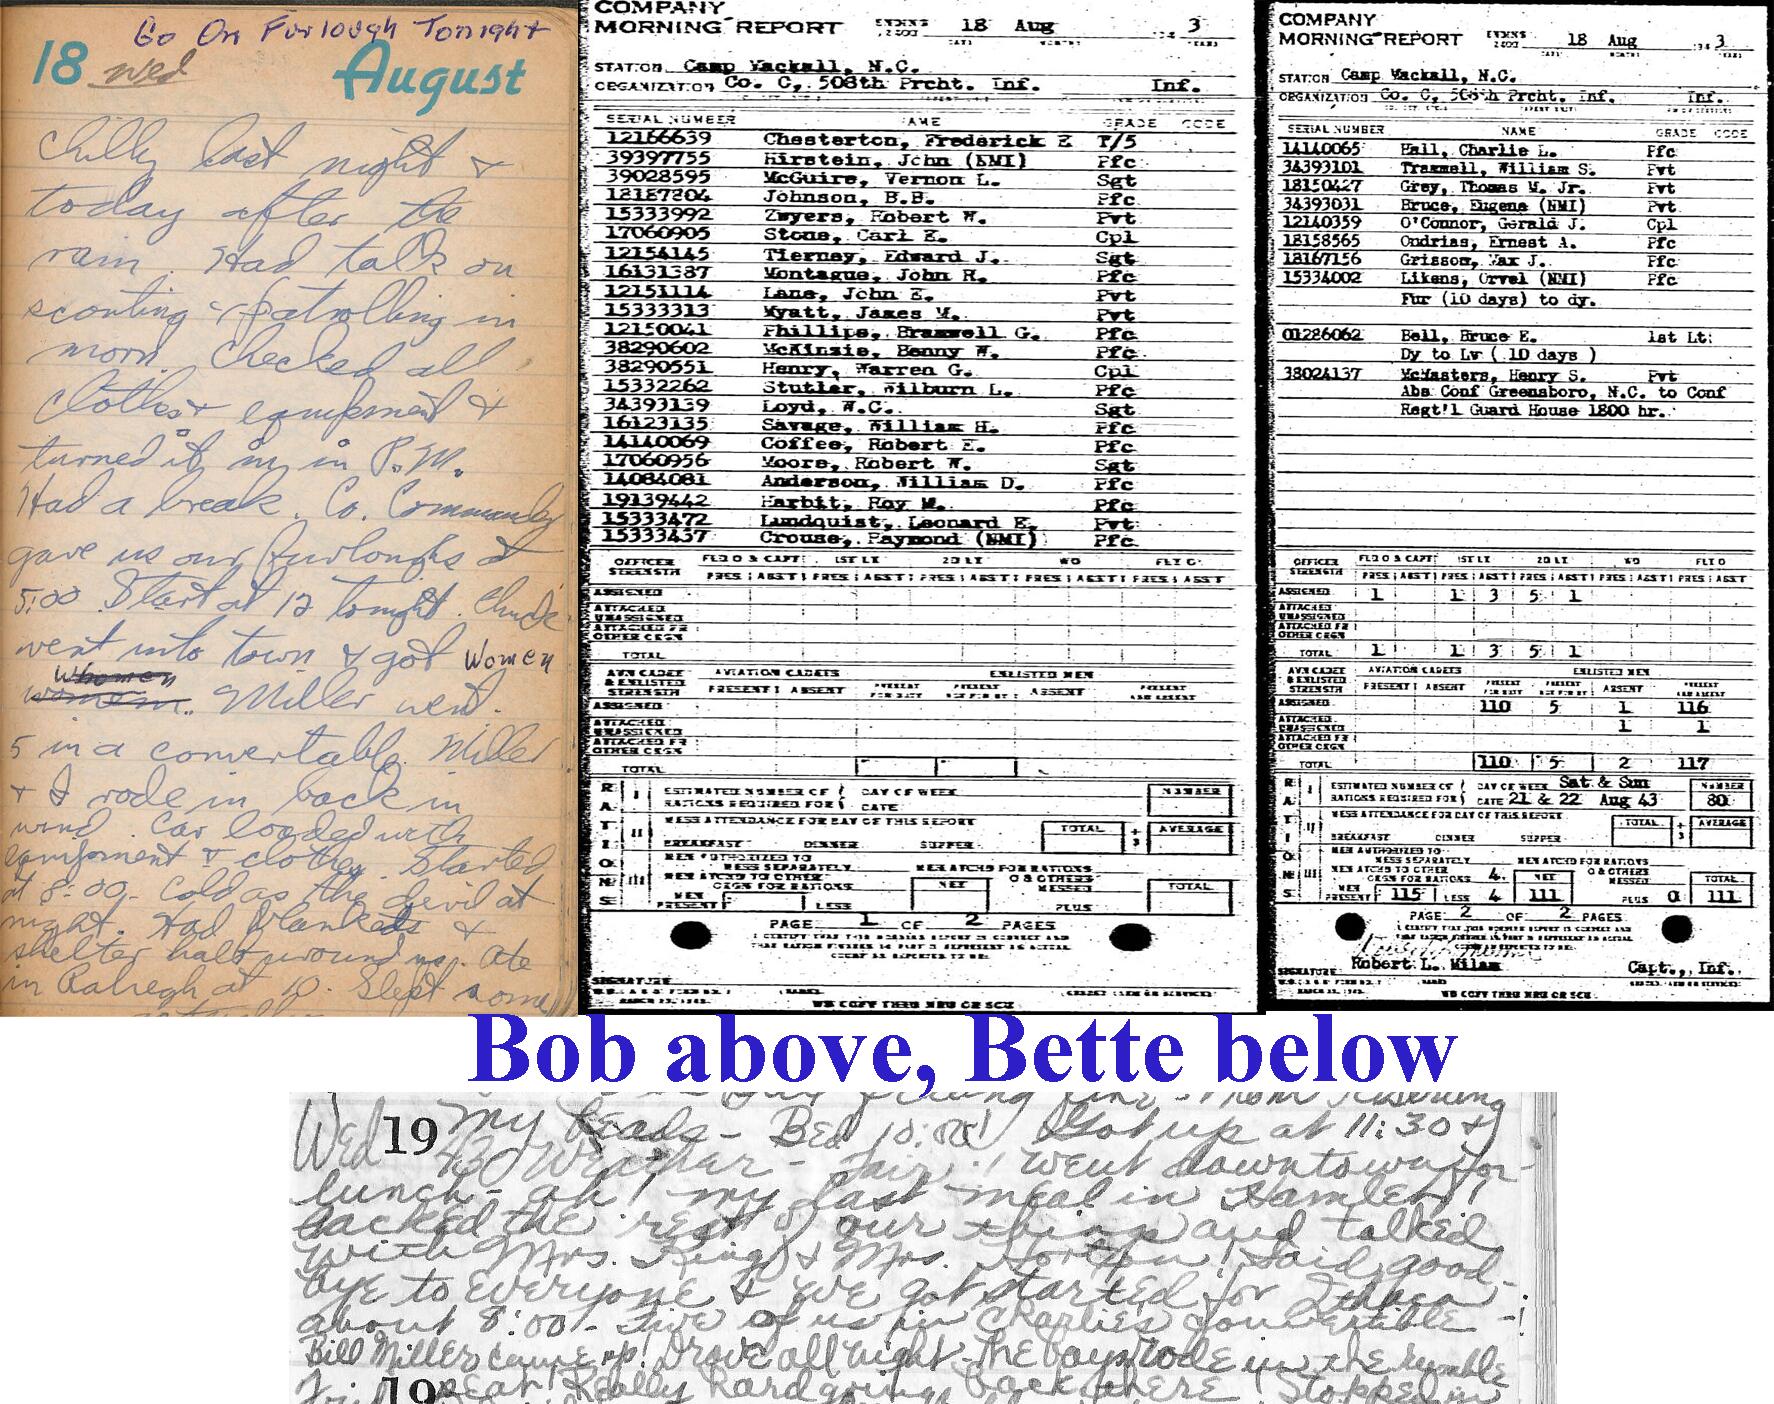 Go On Furlough Tonight
18 Wed August
Chilly last night &
today after the
rain. Had talk on
scouting & patrolling in
morn. Checked all
clothes & equipment &
turned it in in P.M.
Had a break. Co. Commander
gave us our furloughs at
5:00 Start at 12 tonight. Chuck
went into town & got Women
Whomen
women. Miller went.
5 in a convertable. Miller
& I rode in back in
wind. Car loaded with
equipment & clothes. Started
at 8:00. Cold as the devil at
night. Had blankets &
shelter half around us. Ate
in Raleigh at 10. Slept some
COMPANY
MORNING REPORT ENDING 2400 18 Aug 3
STATION Camp Mackall, N.C.
ORGANIZATION Co. C, 508th Prcht. Inf. Inf.
SERIAL NUMBER NAME GRADE CODE
12166639 Chesterton, Frederick E T/5
39397755 Hirstein, John (NMI) Pfc
39028595 McGuire, Vernon L. Sgt
18187204 Johnson, B.B. Pfc
15333992 Zwyers, Robert W. Pvt
17060905 Stone, Carl E. Cpl
12154145 Tierney, Edward J. Sgt
16131387 Montague, John R. Pfc
12151114 Lane, John E. Pvt
15333313 Wyatt, James M. Pvt
12150041 Phillips, Bramwell G. Pfc
38290602 McKinzie, Benny W. Pfc
38290551 Henry, Warren G. Cpl
15332262 Stutler, Wilburn L. Pfc
34393139 Loyd, W.C. Sgt
16123135 Savage, William H. Pfc
14140069 Coffee, Robert E. Pfc
17060956 Moore, Robert W. Sgt
14084081 Anderson, William D. Pfc
19139442 Harbit, Roy M. Pfc
15333472 Lundquist, Leonard E. Pvt
15333437 Crouse, Raymond (NMI) Pfc
OFFICER STRENGTH FLD O & CAPT 1ST LT 2D LT WO FLT O
PRES ABST PRES ABST PRES ABST PRES ABST PRES ABST
ASSIGNED
ATTACHED
UNASSIGNED
ATTACHED FR
OTHER ORGN
TOTAL
AVN CADET & ENLISTED STRENGTH AVIATION CADETS ENLISTED MEN
PRESENT ABSENT PRESENT FOR DY PRESENT NOT FOR DY ABSENT PRESENT AND ABSENT
ASSIGNED
ATTACHED
UNASSIGNED
ATTACHED FR
OTHER ORGN
TOTAL
RATIONS
I ESTIMATED NUMBER OF RATIONS REQUIRED FOR DAY OF WEEK DATE NUMBER
II MESS ATTENDANCE FOR DAY OF THIS REPORT TOTAL ÷ 3 AVERAGE
BREAKFAST DINNER SUPPER
III MEN AUTHORIZED TO MESS SEPARATELY
MEN ATCHD TO OTHER ORGN FOR RATIONS NET MEN ATCHD FOR RATIONS O & OTHERS MESSED TOTAL
MEN PRESENT LESS PLUS
PAGE 1 OF 2 PAGES
I CERTIFY THAT THIS MORNING REPORT IS CORRECT AND
THAT RATION FIGURES IN PART II REPRESENT IS ACTUAL
COUNT AS REPORTED TO ME.
SIGNATURE
COMPANY
MORNING REPORT ENDING 2400 18 Aug 194 3
STATION Camp Mackall, N.C.
ORGANIZATION Co. C, 508th Prcht. Inf. Inf.
SERIAL NUMBER NAME GRADE CODE
14140065 Hall, Charlie L. Pfc
34393101 Trammell, William S. Pvt
18150427 Grey, Thomas M. Jr. Pvt
34393031 Bruce, Eugene (NMI) Pvt
12140359 O'Connor, Gerald J. Cpl
18158565 Ondrias, Ernest A. Pfc
18167156 Grissom, Max J. Pfc
15334002 Likens, Orvel (NMI) Pfc
Fur (10 days) to dy.
01286062 Bell, Bruce E. 1st Lt.
Dy to Lv ( 10 days )
38024137 McMasters, Henry S. Pvt
Abs Conf Greensboro, N.C. to Conf
Regt'l Guard House 1800 hr.
OFFICER STRENGTH FLD O & CAPT 1ST LT 2D LT WO FLT O
PRES ABST PRES ABST PRES ABST PRES ABST PRES ABST
ASSIGNED 1 1 3 5 1
ATTACHED
UNASSIGNED
ATTACHED FR
OTHER ORGN
TOTAL 1 1 3 5 1
AVN CADET & ENLISTED STRENGTH AVIATION CADETS ENLISTED MEN
PRESENT ABSENT PRESENT FOR DY PRESENT NOT FOR DY ABSENT PRESENT AND ABSENT
ASSIGNED 110 5 1 116
ATTACHED
UNASSIGNED 1 1
ATTACHED FR
OTHER ORGN
TOTAL 110 5 2 117
RATIONS
I ESTIMATED NUMBER OF RATIONS REQUIRED FOR DAY OF WEEK Sat & Sun DATE 21 & 22 Aug 43 NUMBER 80
II MESS ATTENDANCE FOR DAY OF THIS REPORT TOTAL ÷ 3 AVERAGE
BREAKFAST DINNER SUPPER
III MEN AUTHORIZED TO MESS SEPARATELY
MEN ATCHD TO OTHER ORGN FOR RATIONS 4 NET MEN ATCHD FOR RATIONS O & OTHERS MESSED TOTAL
MEN PRESENT 115 LESS 4 111 PLUS 0 111
PAGE 2 OF 2 PAGES
I CERTIFY THAT THIS MORNING REPORT IS CORRECT AND
THAT RATION FIGURES IN PART II REPRESENT IS ACTUAL
COUNT AS REPORTED TO ME.
SIGNATURE Robert L. Milam Capt., Inf.
Bob above, Bette below
Wed 19 my heads - Bed 10:00! Got up at 11:30 &
43 Weather - fair! Went downtown for
lunch - ah! my last meal in Hamlet!
Packed the rest of our things and talked
with Mrs. King & Mrs. Horton! Said good-
bye to everyone & we got started for Ithaca
about 8:00 - Five of us in Charlies convertible - !
Bill Miller came up! Drove all night - The boys rode in the rumble
Fri 19 seat! Really hard going back there! Stopped in